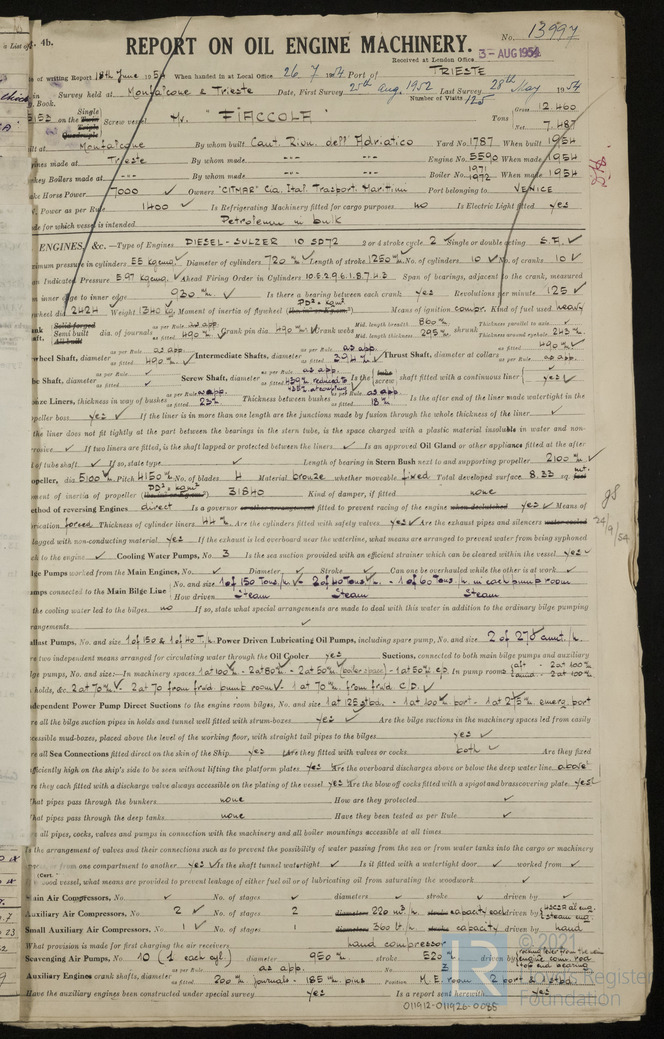 4b.
REPORT ON OIL ENGINE MACHINERY.
No. 13997
Received at London Office 3-AUG 1954
of writing Report 18th June 1954 When handed in at Local Office 26 7 1954 Port of TRIESTE
Survey held at Monfalcone & Trieste Date, First Survey 25th Aug. 1952 Last Survey 28th May 1954
Book. Number of Visits 125
on the Single Screw vessel M/v. "FIACCOLA" Tons Gross 12.460 Net 7.487
Monfalcone By whom built Cant. Riun. dell'Adriatico Yard No. 1787 When built 1954
made at Trieste By whom made --- Engine No. 5590 When made 1954
Boilers made at --- By whom made --- Boiler No. 1971 1972 When made 1954
Horse Power 7000 Owners "CITMAR" Cia. Ital. Trasport. Marittimi Port belonging to VENICE
Power as per Rule 1400 Is Refrigerating Machinery fitted for cargo purposes no Is Electric Light fitted yes
for which vessel is intended Petroleum in bulk
ENGINES, &c. —Type of Engines DIESEL-SULZER 10 SD72 2 or 4 stroke cycle 2 Single or double acting S.A.
pressure in cylinders 55 kg/cmq. Diameter of cylinders 720 m/m Length of stroke 1250 m/m No. of cylinders 10 No. of cranks 10
Indicated Pressure 5.97 kg/cmq. Ahead Firing Order in Cylinders 10.6.2.9.1.8.7.4.3 Span of bearings, adjacent to the crank, measured
inner edge to inner edge 930 m/m. Is there a bearing between each crank yes Revolutions per minute 125
2424 Weight 1340 kg Moment of inertia of flywheel Means of ignition compr. Kind of fuel used heavy
Semi built dia. of journals as per Rule as app. as fitted 490 m/m Crank pin dia. 490 m/m Crank webs Mid. length breadth 860 m/m Mid. length thickness 295 m/m shrunk Thickness parallel to axis Thickness around eyehole 245 m/m
Shaft, diameter as per Rule as app. as fitted 490 m/m Intermediate Shafts, diameter as per Rule as app. as fitted 394 m/m Thrust Shaft, diameter at collars as fitted 490 m/m as per Rule as app.
Shaft, diameter as per Rule as fitted Screw Shaft, diameter as per Rule as app. as fitted Is the screw shaft fitted with a continuous liner yes
Liners, thickness in way of bushes as per Rule as app. as fitted 25 m/m Thickness between bushes as per Rule as app. as fitted 18 m/m Is the after end of the liner made watertight in the
boss yes If the liner is in more than one length are the junctions made by fusion through the whole thickness of the liner
the liner does not fit tightly at the part between the bearings in the stern tube, is the space charged with a plastic material insoluble in water and non-
If two liners are fitted, is the shaft lapped or protected between the liners Is an approved Oil Gland or other appliance fitted at the after
of tube shaft If so, state type Length of bearing in Stern Bush next to and supporting propeller 2100 m/m
dia 5100 m/m Pitch 4150 m/m No. of blades 4 Material bronze whether moveable fixed Total developed surface 8.33 sq. mt.
of inertia of propeller 31840 Kind of damper, if fitted none
of reversing Engines direct Is a governor fitted to prevent racing of the engine yes Means of
forced Thickness of cylinder liners 44 m/m Are the cylinders fitted with safety valves yes Are the exhaust pipes and silencers
lagged with non-conducting material yes If the exhaust is led overboard near the waterline, what means are arranged to prevent water from being syphoned
to the engine Cooling Water Pumps, No. 3 Is the sea suction provided with an efficient strainer which can be cleared within the vessel yes
Pumps worked from the Main Engines, No. Diameter Stroke Can one be overhauled while the other is at work
connected to the Main Bilge Line No. and size 1 of 150 Tons/h. - 2 of 40 Tons/h. - 1 of 60 Tons/h. in each pump room
How driven Steam Steam Steam
the cooling water led to the bilges no If so, state what special arrangements are made to deal with this water in addition to the ordinary bilge pumping
Pumps, No. and size 1 of 150 & 1 of 40 T/h. Power Driven Lubricating Oil Pumps, including spare pump, No. and size 2 of 270 cu.mt./h.
two independent means arranged for circulating water through the Oil Cooler yes Suctions, connected to both main bilge pumps and auxiliary
pumps, No. and size:—In machinery spaces 1 at 100 m/m - 2 at 80 m/m - 2 at 50 m/m (boiler space) - 1 at 50 m/m e.p. In pump room aft - 2 at 100 m/m - 2 at 100 m/m
holds, &c. 2 at 70 m/m. 2 at 70 from frwd pump room. 1 at 70 m/m. from frwd C.D.
Independent Power Pump Direct Suctions to the engine room bilges, No. and size 1 at 125 stbd. - 1 at 100 port - 1 at 275 m/m emerg. port
all the bilge suction pipes in holds and tunnel well fitted with strum-boxes yes Are the bilge suctions in the machinery spaces led from easily
mud-boxes, placed above the level of the working floor, with straight tail pipes to the bilges yes
all Sea Connections fitted direct on the skin of the Ship yes Are they fitted with valves or cocks both Are they fixed
sufficiently high on the ship's side to be seen without lifting the platform plates yes Are the overboard discharges above or below the deep water line above
they each fitted with a discharge valve always accessible on the plating of the vessel yes Are the blow off cocks fitted with a spigot and brass covering plate yes
What pipes pass through the bunkers none How are they protected
What pipes pass through the deep tanks none Have they been tested as per Rule
all pipes, cocks, valves and pumps in connection with the machinery and all boiler mountings accessible at all times
Is the arrangement of valves and their connections such as to prevent the possibility of water passing from the sea or from water tanks into the cargo or machinery
from one compartment to another yes Is the shaft tunnel watertight Is it fitted with a watertight door worked from
wood vessel, what means are provided to prevent leakage of either fuel oil or of lubricating oil from saturating the woodwork
Main Air Compressors, No. No. of stages diameters stroke driven by
Auxiliary Air Compressors, No. 2 No. of stages 2 220 m3/h capacity each driven by
Small Auxiliary Air Compressors, No. 1 No. of stages 1 360 lt/h. capacity driven by hand
What provision is made for first charging the air receivers hand compressor
Scavenging Air Pumps, No. 10 (1 each cyl.) diameter 950 m/m stroke 520 m/m driven by
Auxiliary Engines crank shafts, diameter as per Rule as app. as fitted 200 m/m journals - 185 m/m pins No. 3 Position M.E. room 2 port & 1 stbd.
Have the auxiliary engines been constructed under special survey yes Is a report sent herewith yes
24/9/54
© 2021
Lloyd's Register
Foundation
011912-011926-0085